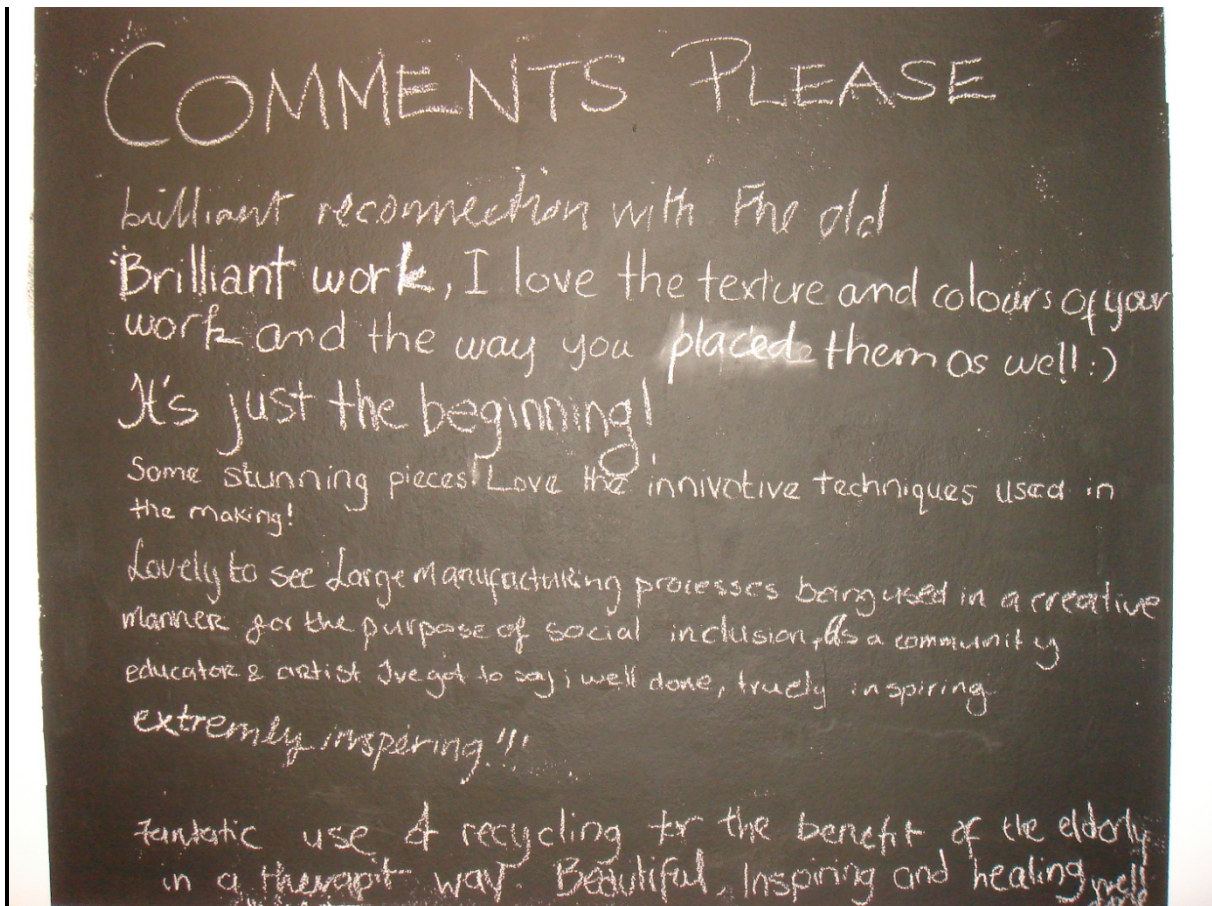 COMMENTS PLEASE
brilliant reconnection with the old
Brilliant work, I love the texture and colours of your
work and the way you placed them as well :)
It's just the beginning!
Some stunning pieces! Love the innivotive techniques used in
the making!
Lovely to see Large Manufacturing processes being used in a creative
manner for the purpose of social inclusion, As a community
educator & artist I've got to say i well done, truely inspiring
extremly inspering!!!
Fantatic use of recycling for the benefit of the elderly
in a therapit way. Beautiful, Inspiring and healing well